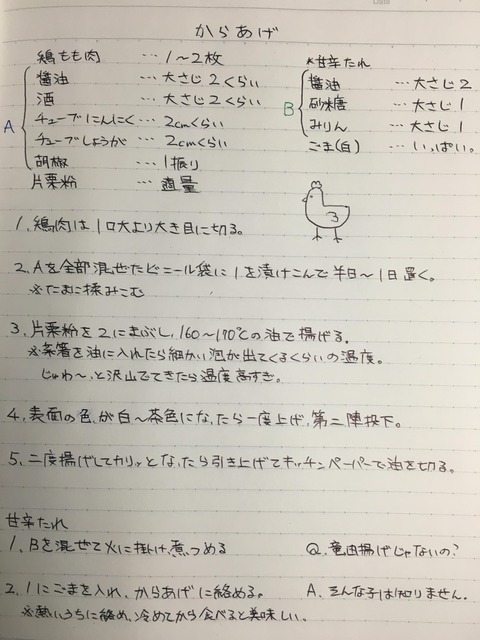 からあげ
鶏もも肉 … 1〜2枚
醤油 … 大さじ2くらい
酒 … 大さじ2くらい
チューブにんにく … 2cmくらい
チューブしょうが … 2cmくらい
胡椒 … 1振り
A
片栗粉 … 適量
*甘辛たれ
醤油 … 大さじ2
砂糖 … 大さじ1
みりん … 大さじ1
B
ごま(白) … いっぱい。
1.鶏肉は1口大より大き目に切る。
2.Aを全部混ぜたビニール袋に1を漬けこんで半日〜1日置く。
※たまに揉みこむ
3.片栗粉を2にまぶし、160〜170℃の油で揚げる。
※菜箸を油に入れたら細かい泡が出てくるくらいの温度。
じゅわ〜っと沢山でてきたら温度高すぎ。
4.表面の色が白〜茶色になったら一度上げ、第二陣投下。
5.二度揚げしてカリッとなったら引き上げてキッチンペーパーで油を切る。
甘辛たれ
1.Bを混ぜて火に掛け、煮つめる
2.1にごまを入れ、からあげに絡める。
※熱いうちに絡め、冷めてから食べると美味しい。
Q.竜田揚げじゃないの?
A.そんな子は知りません。